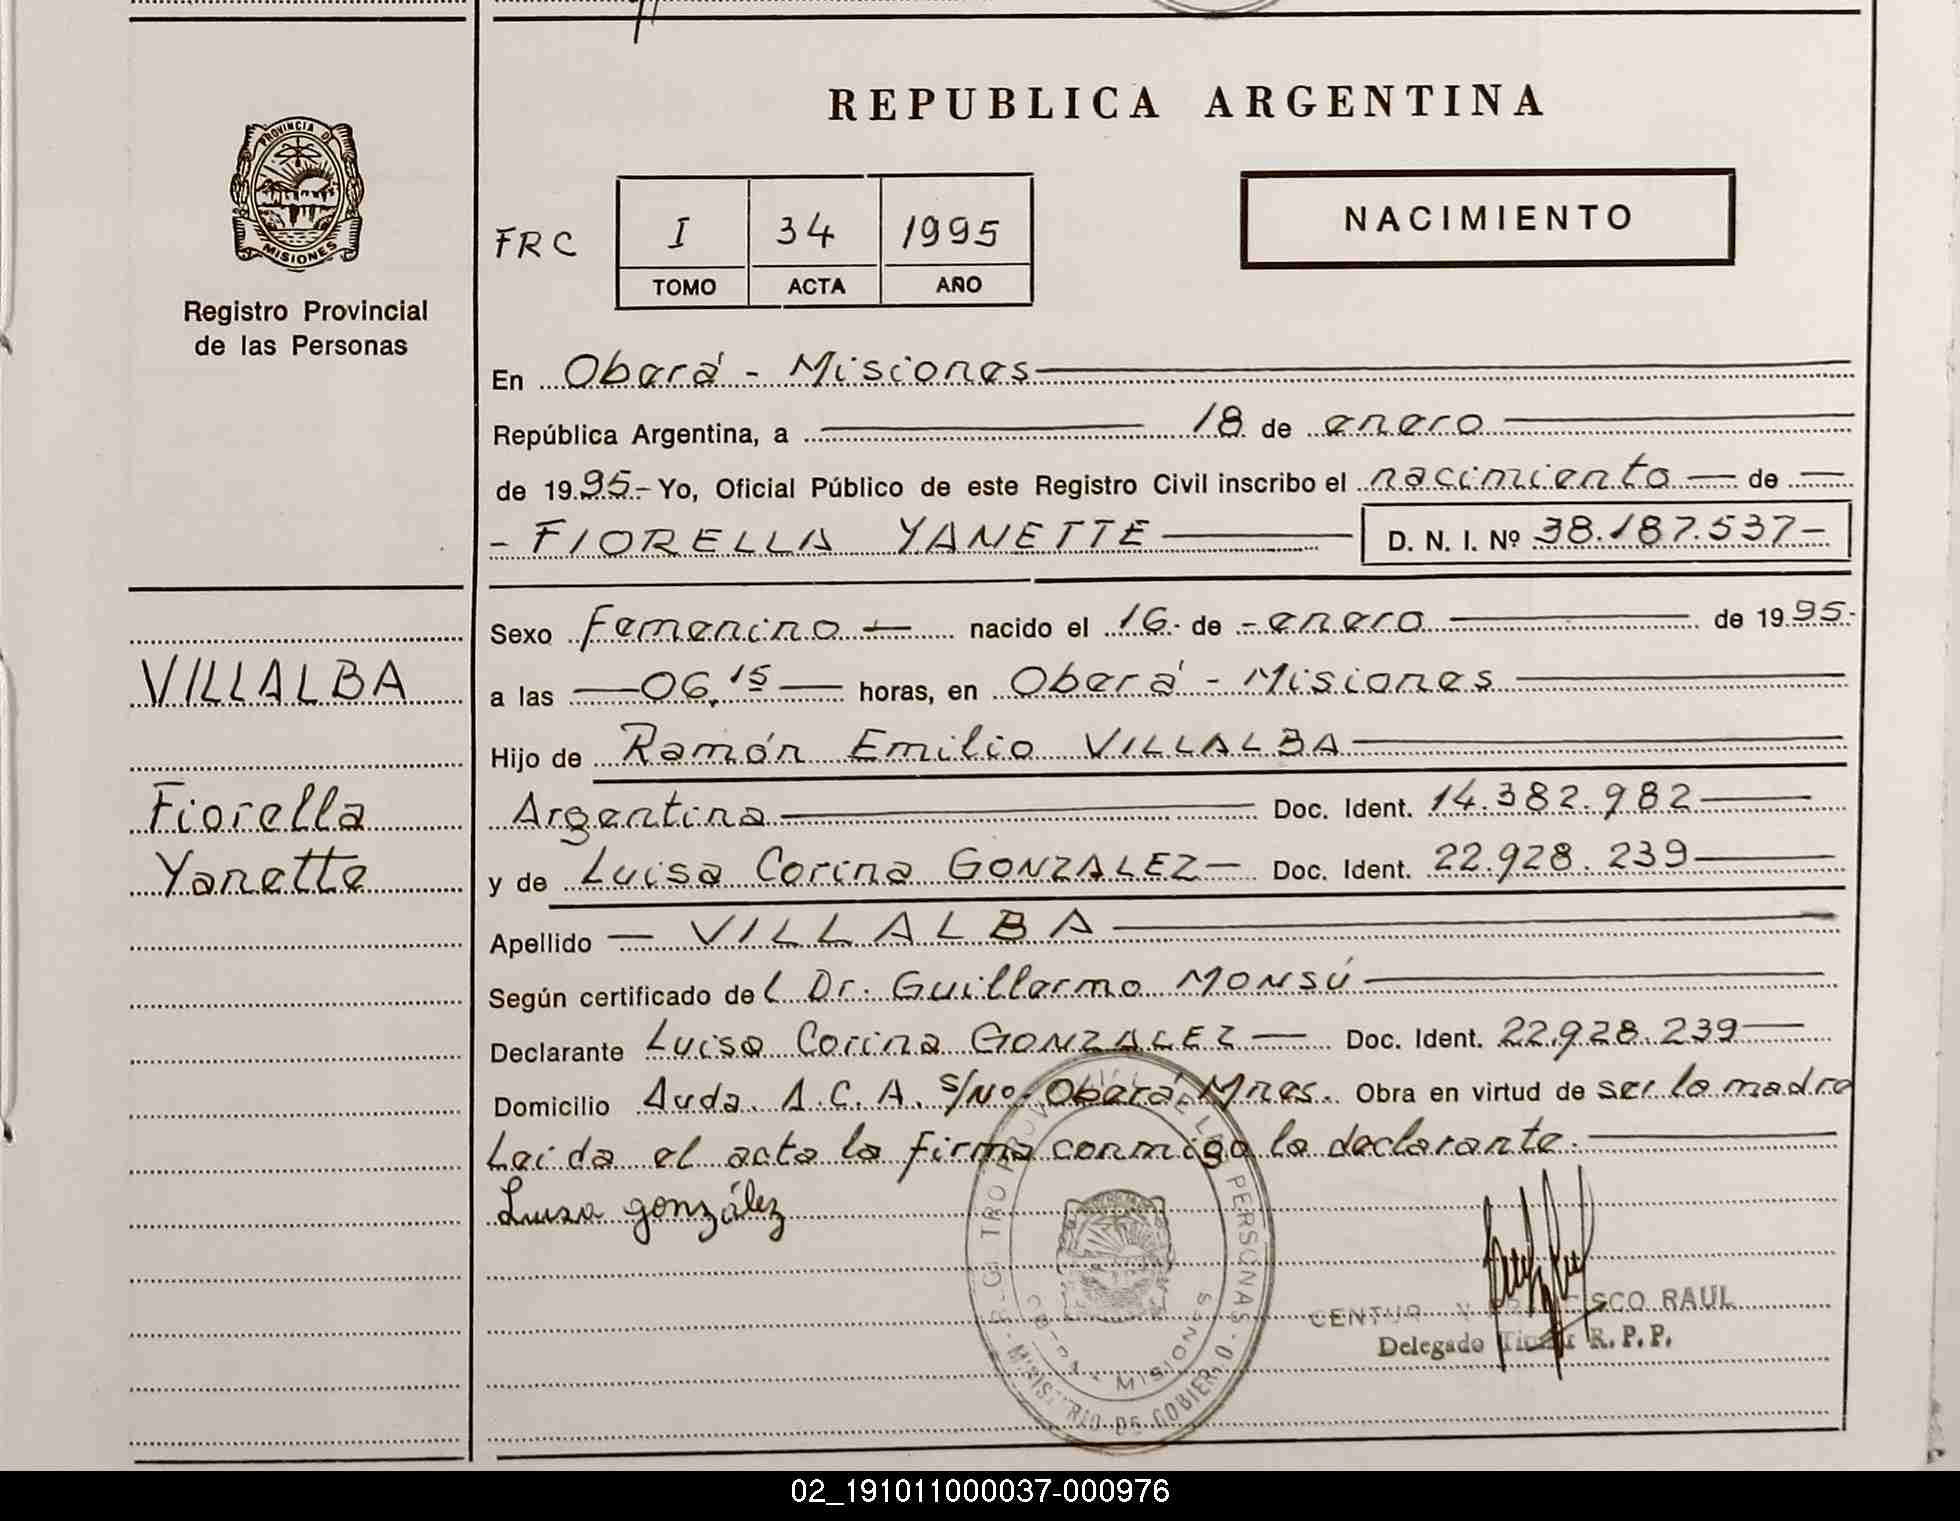 REPUBLICA ARGENTINA
PROVINCIA D
MISIONES
Registro Provincial
de las Personas
FRC
I 34 1995
TOMO ACTA AÑO
NACIMIENTO
En Oberá - Misiones
República Argentina, a 18 de enero
de 1995.- Yo, Oficial Público de este Registro Civil inscribo el nacimiento de
- FIORELLA YANETTE D. N. I. Nº 38.187.537-
Sexo Femenino nacido el 16 de enero de 1995-
a las 06,15 horas, en Oberá - Misiones
Hijo de Ramón Emilio VILLALBA
Argentina Doc. Ident. 14.382.982
y de Luisa Corina GONZALEZ Doc. Ident. 22.928.239
Apellido VILLALBA
Según certificado del Dr. Guillermo MONSÚ
Declarante Luisa Corina GONZALEZ Doc. Ident. 22.928.239
Domicilio Avda. A.C.A. s/Nº Oberá Mnes. Obra en virtud de ser la madre
Leida el acta la firma conmigo la declarante.
Luisa gonzález
VILLALBA
Fiorella
Yanette
PERSONAS
MISIONES
MINISTERIO DE GOBIERNO
RAUL
Delegado R. P. P.
02_191011000037-000976